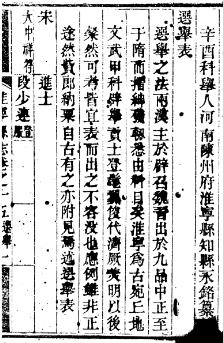 辛酉科舉人河南陳州府淮寧縣知縣永銘纂
選舉表
選舉之法兩漢主於辟召魏晉出於九品中正至
于隋而搢紳
科目矣淮寧為古宛上地
文武甲科辟舉貢士登
後代濟厥美明以後
粲然可考皆宜表而出之不容沒也應例雖非正
途然貲郎納粟自古有之亦附見焉述選舉表
宋 進士
大中祥符
段少連
淮寧縣志卷之
五選舉一